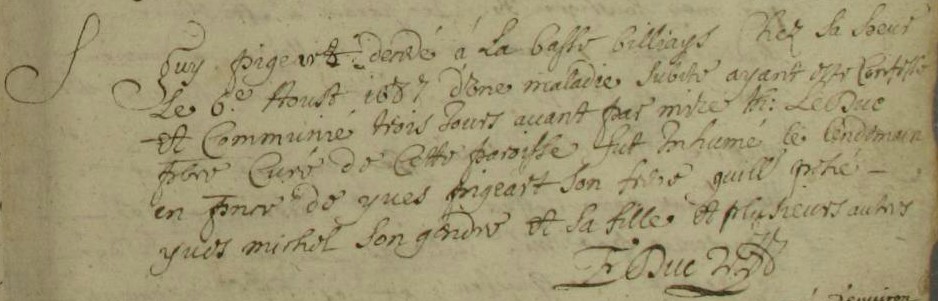 S
Guy pigeart decedé á La basse billiays Chez sa soeur
Le 6.e Aoust 1687 d'une maladie subite ayant esté Confessé
et Communié trois jours avant par mire Le Duc
pbre Curé de Cette paroisse fut Inhumé le lendemain
en pnce de yves pigeart son frere guill
yves michel son gendre et sa fille et plusieurs autres
Duc